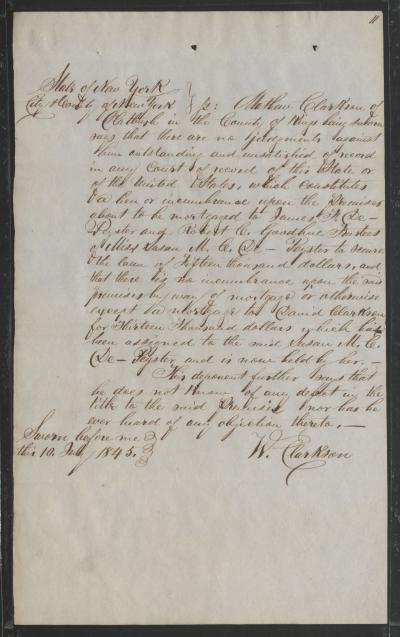 11
State of New York
City & County of New York } ss: Mathew Clarkson of
Flatbush in the County of Kings being sworn
says that there are no judgments against
him outstanding and unsatisfied of record
in any Court of record of this State or
of the United States, which constitutes
a lien or incumbrance upon the premises
about to be mortgaged to James F. De-
Peyster and Robert C. Goodhue Trustees
of Miss Susan M. C. De- Peyster to secure
the loan of Fifteen thousand dollars, and
that there is no incumbrance upon the said
premises by way of mortgage or otherwise
except a mortgage to David Clarkson
for Thirteen Thousand dollars which has
been assigned to the said Susan M. C.
De- Peyster and is now held by her. —
This deponent further says that
he does not know of any defect in the
title to the said Premises nor has he
ever heard of any objection thereto. —
Sworn before me }
this 10. July 1845. } W. Clarkson